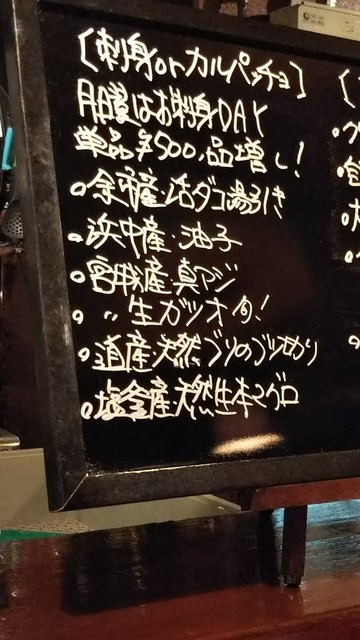 [刺身orカルパッチョ]
月曜はお刺身DAY
単品¥500.品増し!
余市産・活ダコ湯引き
浜中産・油子
宮城産・真アジ
〃 生ガツオ 旬!
道産・天然ブリのブツ切り
塩釜産・天然生本マグロ